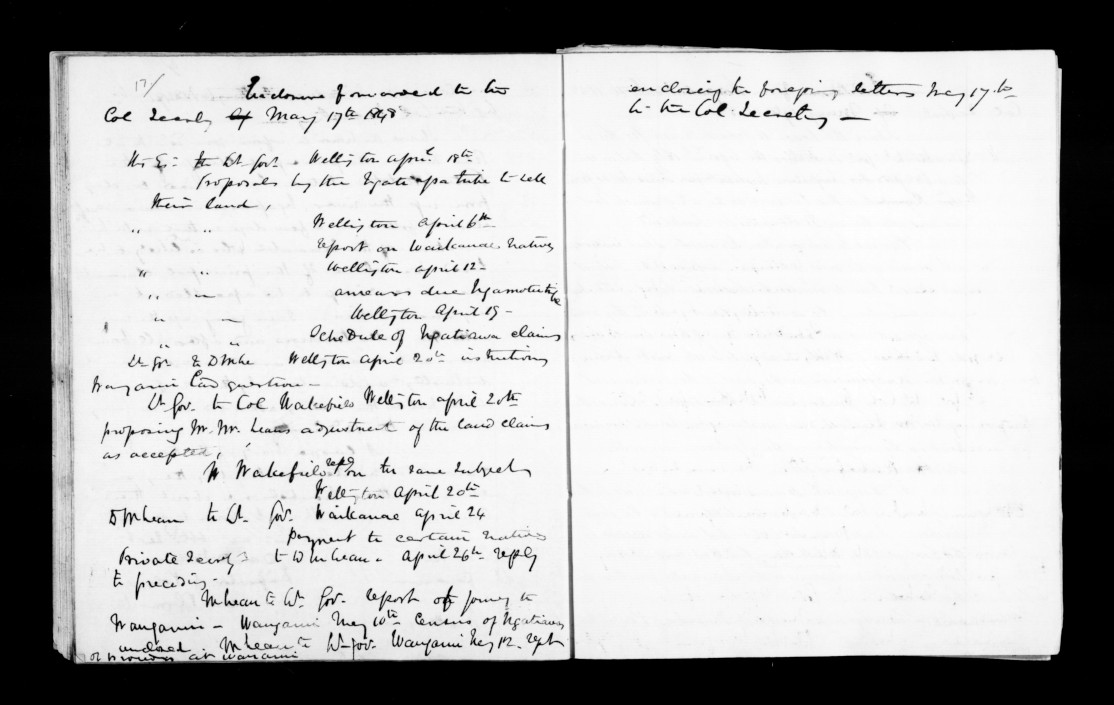 17/
Enclosure forwarded to the
Col Secrety of May 17th 1848
His Ex: to Lt Govr. Wellington April 18th
Proposals by the Ngate apa tribe to sell
their land,
" " Wellington April 6th
report on Waikanae Natives
" " Wellington April 12
" " arrears due Ngamotu tribe
" " Wellington April 19
" " Schedule of Ngatiawa claims
Lt Gov. to D McLe Wellington April 20th instructions
Wanganui Land question
Lt Gov. to Col Wakefield Wellington April 20th
proposing Mr. Mc. Leans adjustment of the land claims
as accepted,
W Wakefield reply on the same subject
Wellington April 20th
D McLean to Lt. Gov. Waikanae April 24
Payment to certain Natives
Private Secrety to D McLean. April 26th reply
to preceding.
McLean to Lt. Gov. report of journey to
Wanganui - Wanganui May 10th Census of Ngatiawas
enclosed McLean to Lt-Gov. Wanganui May 12. rept
of at Wanganui
enclosing the foregoing letters May 17th
to the Col. Secretary